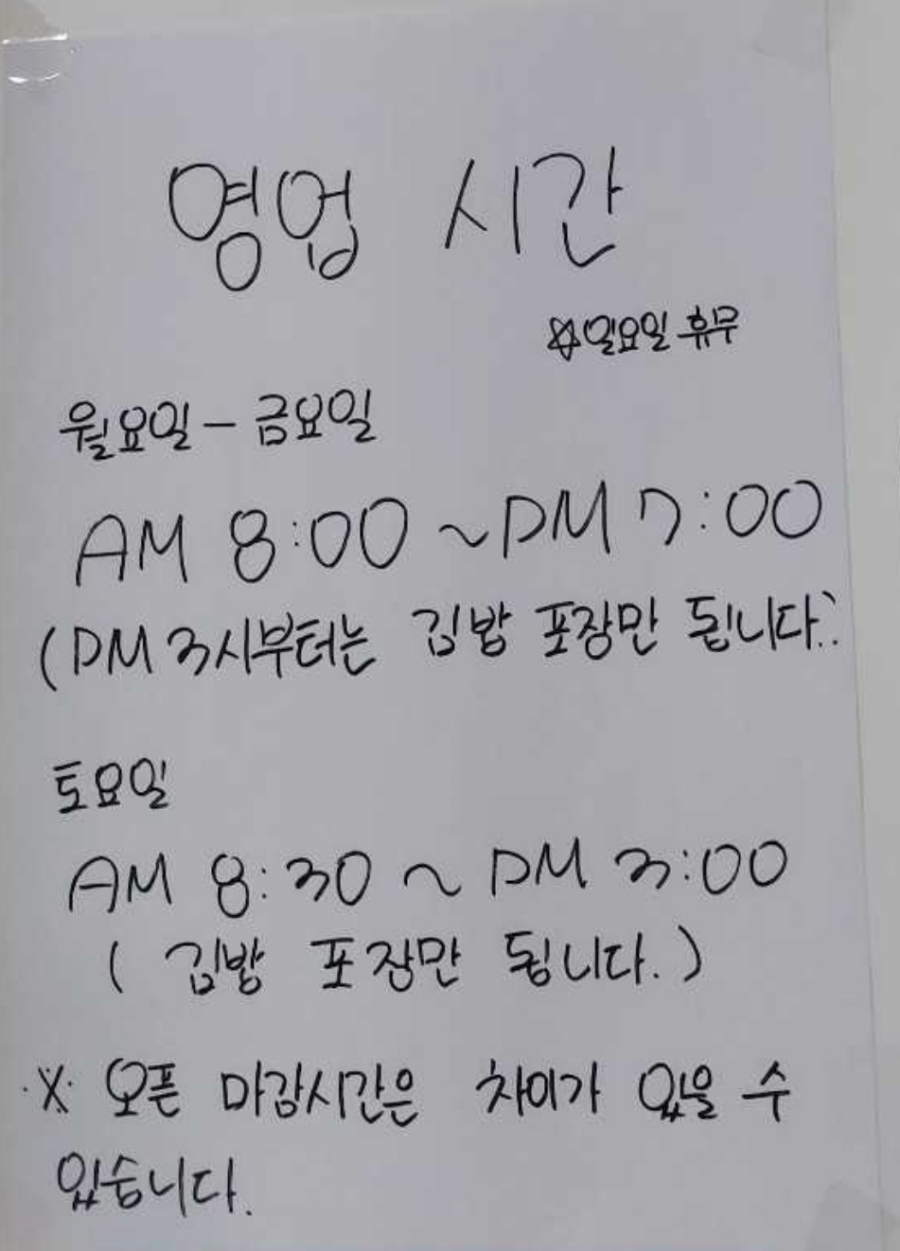 영업 시간
☆일요일 휴무
월요일 - 금요일
AM 8:00 ~ PM 7:00
(PM 3시부터는 김밥 포장만 됩니다.)
토요일
AM 8:30 ~ PM 3:00
( 김밥 포장만 됩니다. )
※ 오픈 마감시간은 차이가 있을 수
있습니다.